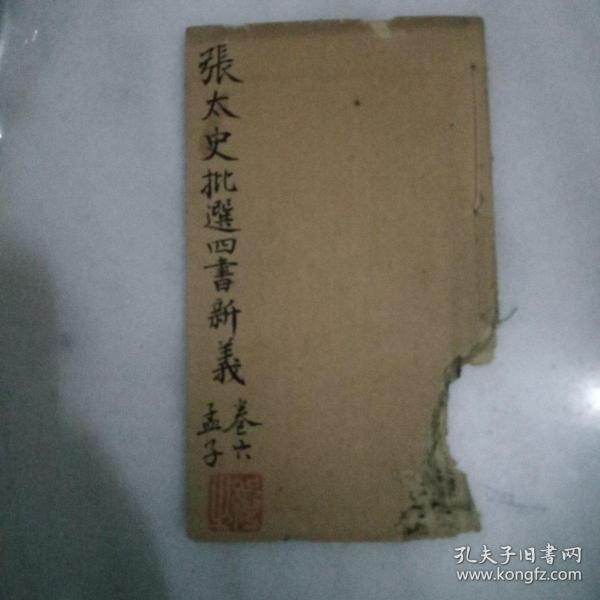 張太史批選四書新義
卷六
孟子
孔夫子旧書网
www.kongfz.com